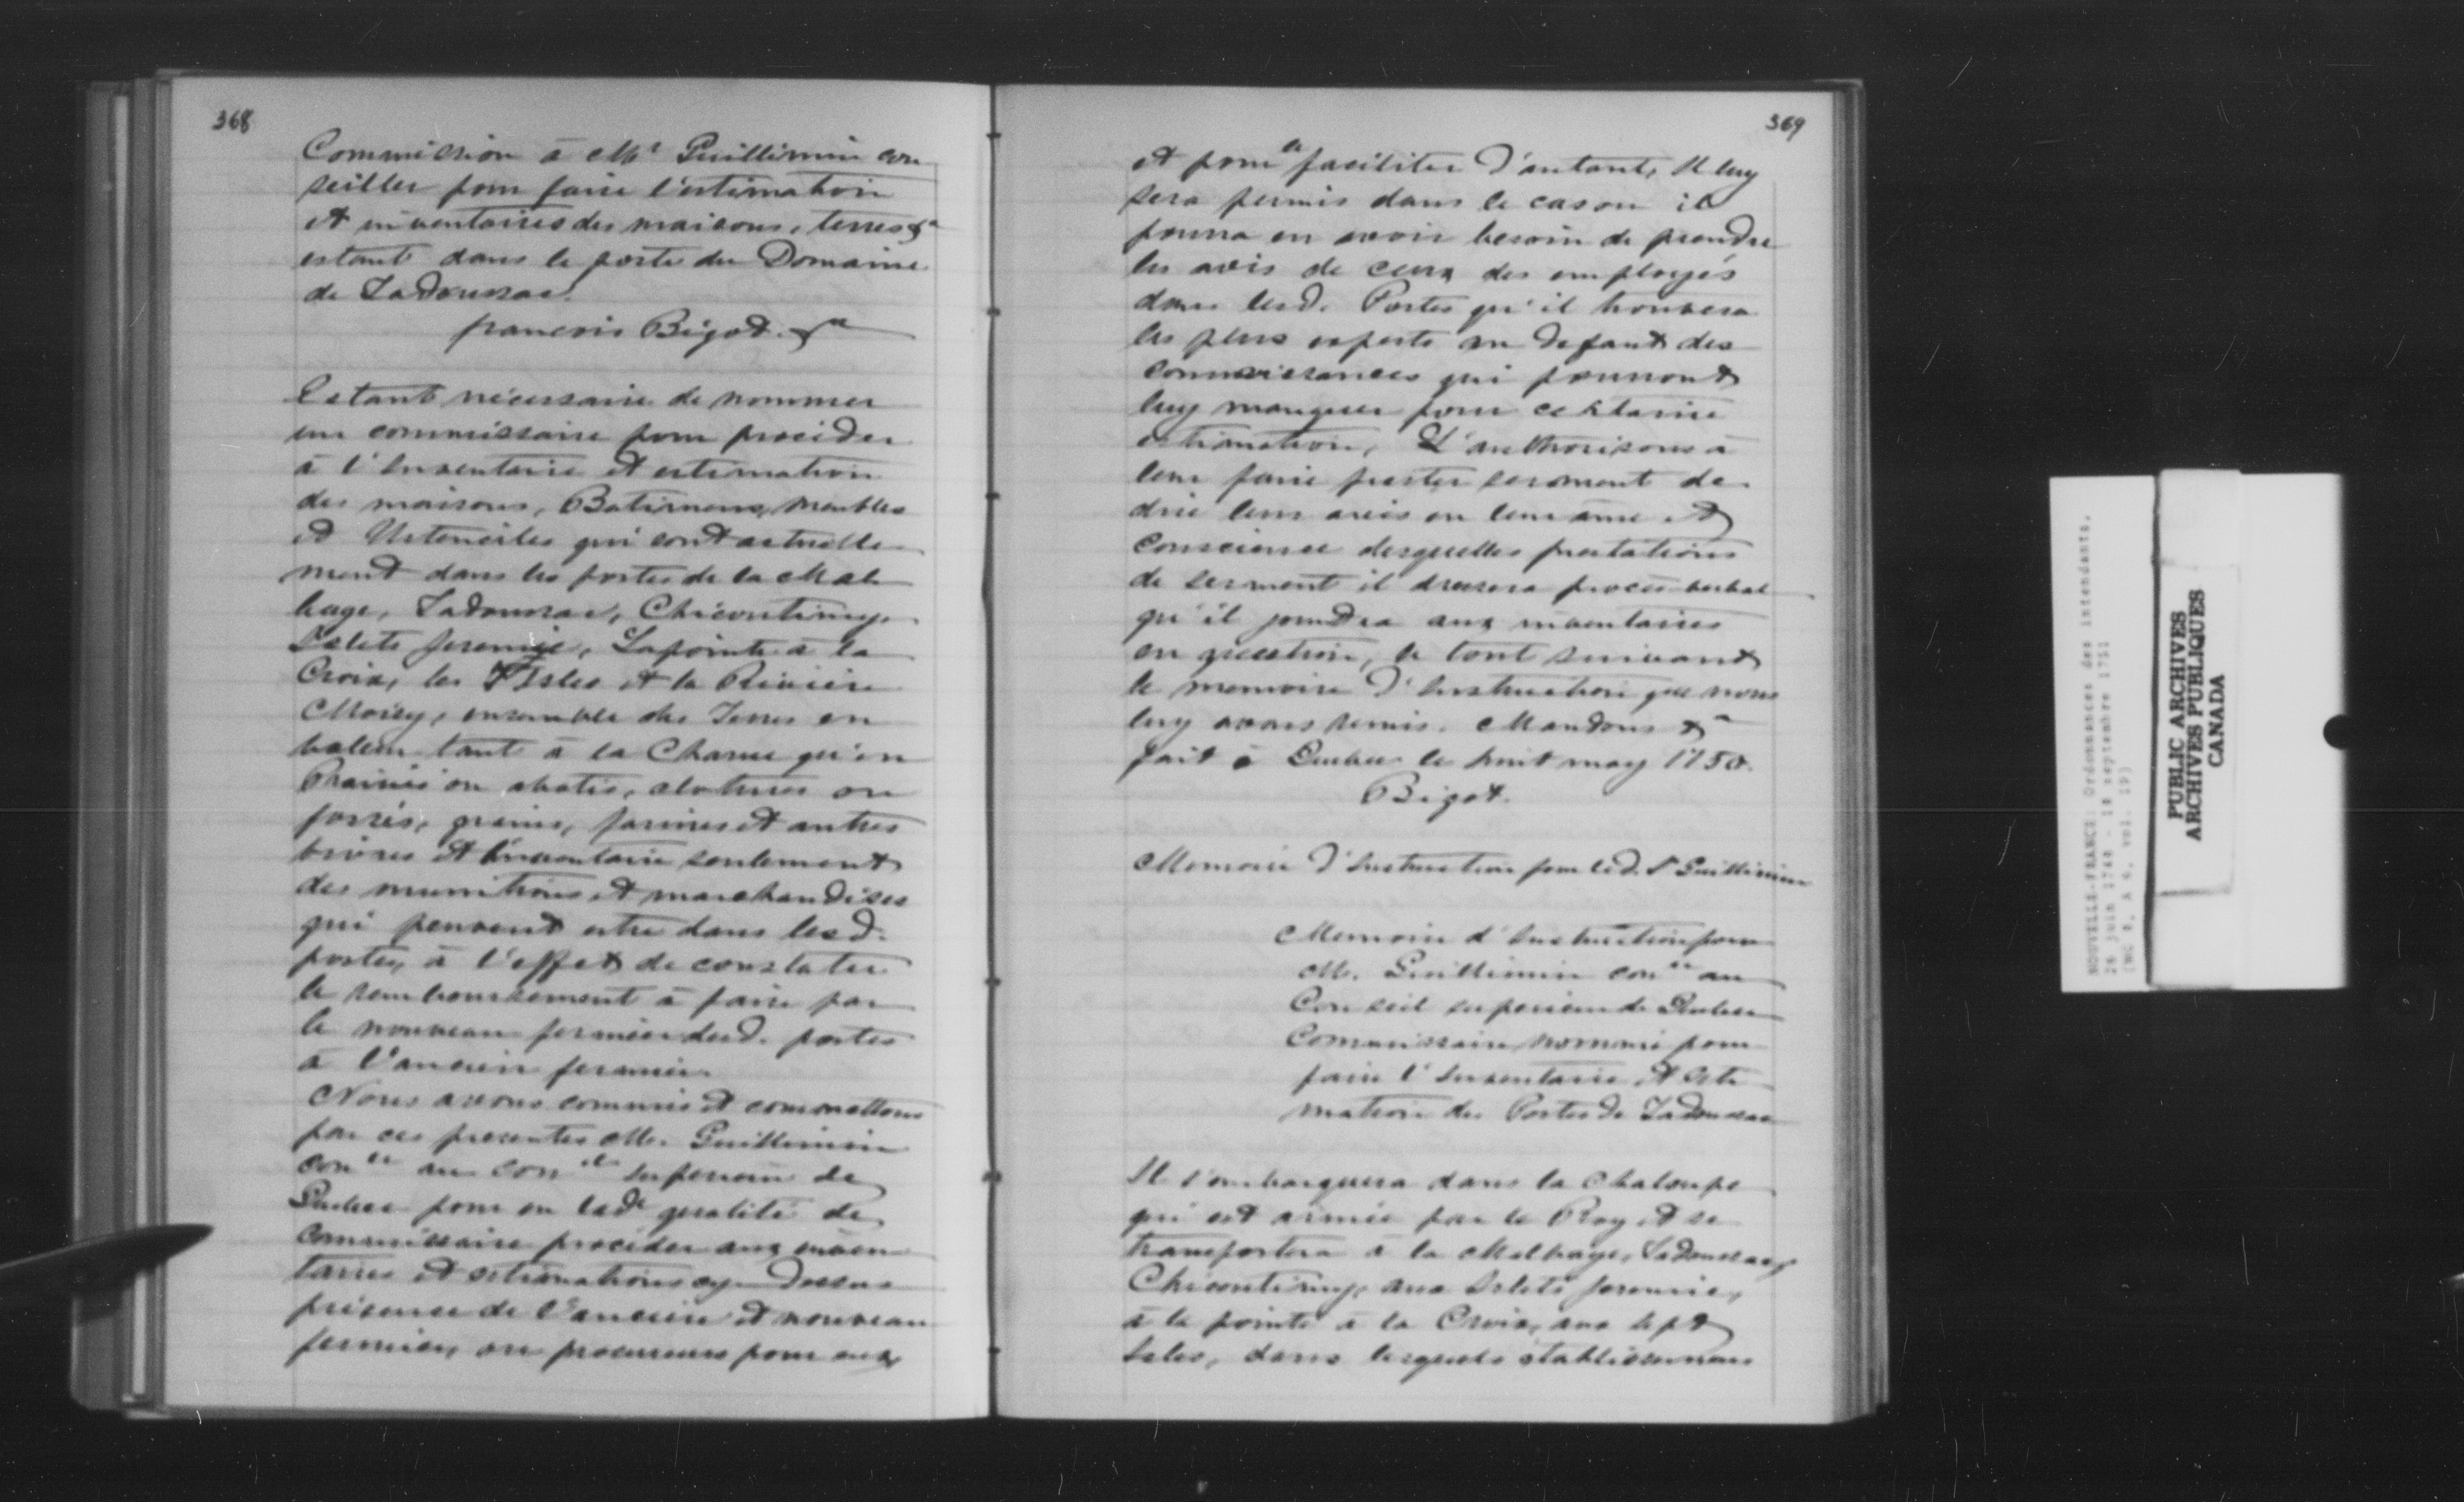 368
Commission à Mr Guillimin con
seiller pour faire l'estimation
et inventaires des maisons, terres &a
estant dans le poste du Domaine
de Tadoussac.
francois Bigot. &a
Estant nécessaire de nommer
un commissaire pour proceder
à l'Inventaire et estimation
des maisons, Batimens, meubles
et Ustenciles qui sont actuelle
ment dans les postes de la Mal
baye, Tadoussac, Chicoutimy,
Islets Jeremie, Lapointe à la
Croix, les 7 Isles et la Riviere
Moisy, ensemble des Terres en
valeur tant à la Charue qu'en
Prairies ou abatis, clotures ou
fossés, grains, farines et autres
vivres et Inventaire seulement
des munitions et marchandises
qui peuvent estre dans lesd.
postes, à l'effet de constater
le remboursement à faire par
le nouveau fermier desd. postes
à l'ancien fermier.
Nous avons commis et commettons
par ces presentes Mr. Guillimin
coner au conel superieur de
Quebec pour en lade qualité de
commissaire proceder aux inven
taires et estimations cy dessus
présence de l'ancien et nouveau
fermier, ou procureurs pour eux,
369
et pour le faciliter d'autant, Il luy
sera permis dans le cas ou il
pourra en avoir besoin de prendre
les avis de ceux des employés
dans lesd. Postes qu'il trouvera
les plus experts au defaut des
connoissances qui pourront
luy manquer pour certaine
estimation, L'authorisons à
leur faire prester serment de
dire leur avis en leur ame et
conscience desquelles prestations
de serment il dressera procès verbal
qu'il joindra aux inventaires
en question, le tout suivant
le memoire d'Instruction que nous
luy avons remis. Mandons &a
fait à Quebec le huit may 1750.
Bigot.
Memoire d'Instruction pour led. Sr Guillimin
Memoire d'Instruction pour
Mr. Guillimin coner au
Conseil superieur de Quebec
Commissaire nommé pour
faire l'Inventaire et Esti
mation des Postes de Tadoussac
Il s'embarquera dans la chaloupe
qui est armée par le Roy et se
transportera à la Malbaye, Tadoussac,
Chicoutimy, aux Islets Jeremie,
à la pointe à la Croix, aux sept
Isles, dans lesquels établissemens
NOUVELLE-FRANCE: Ordonnances des intendants,
(MG 8, A 6, vol. 19)
PUBLIC ARCHIVES
ARCHIVES PUBLIQUES
CANADA